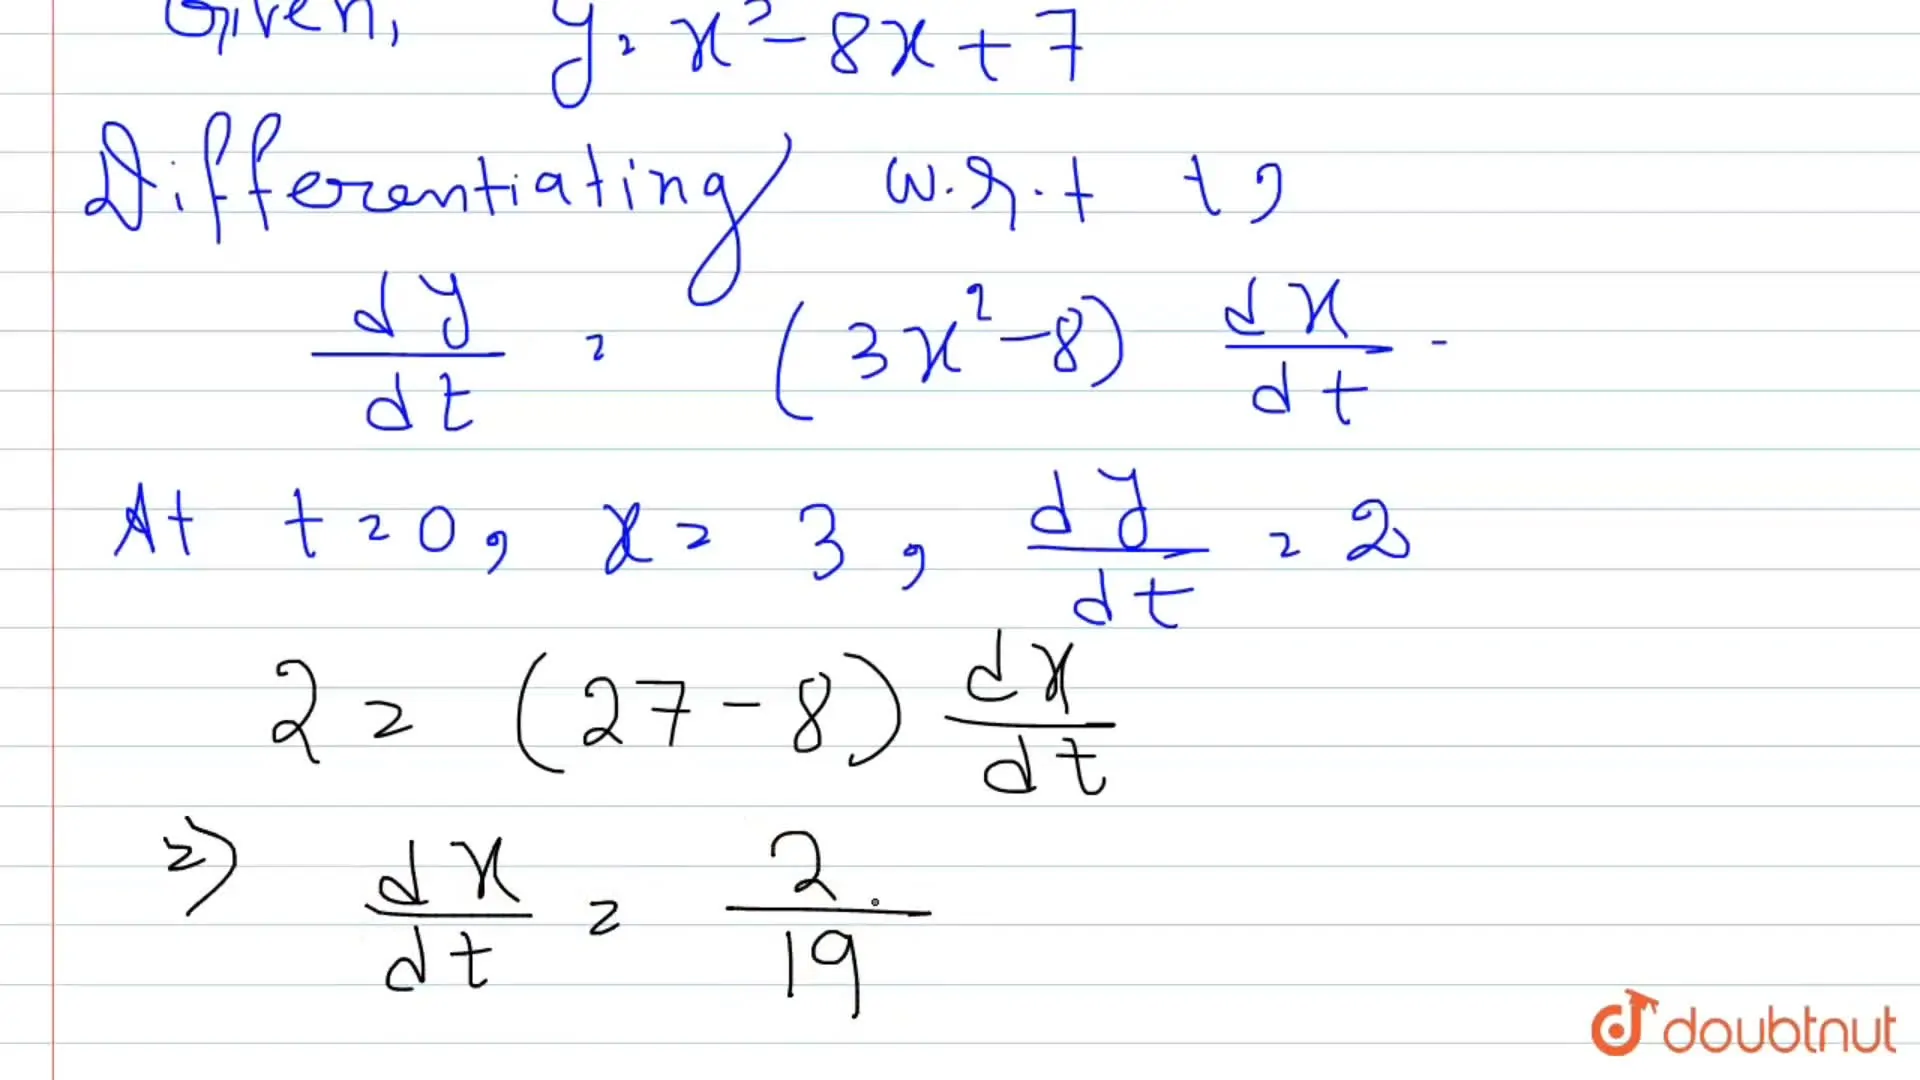 Given, y = x³ - 8x + 7
Differentiating w.r.t t,
dy/dt = (3x² - 8) dx/dt -
At t = 0, x = 3, dy/dt = 2
2 = (27 - 8) dx/dt
=> dx/dt = 2/19
doubtnut